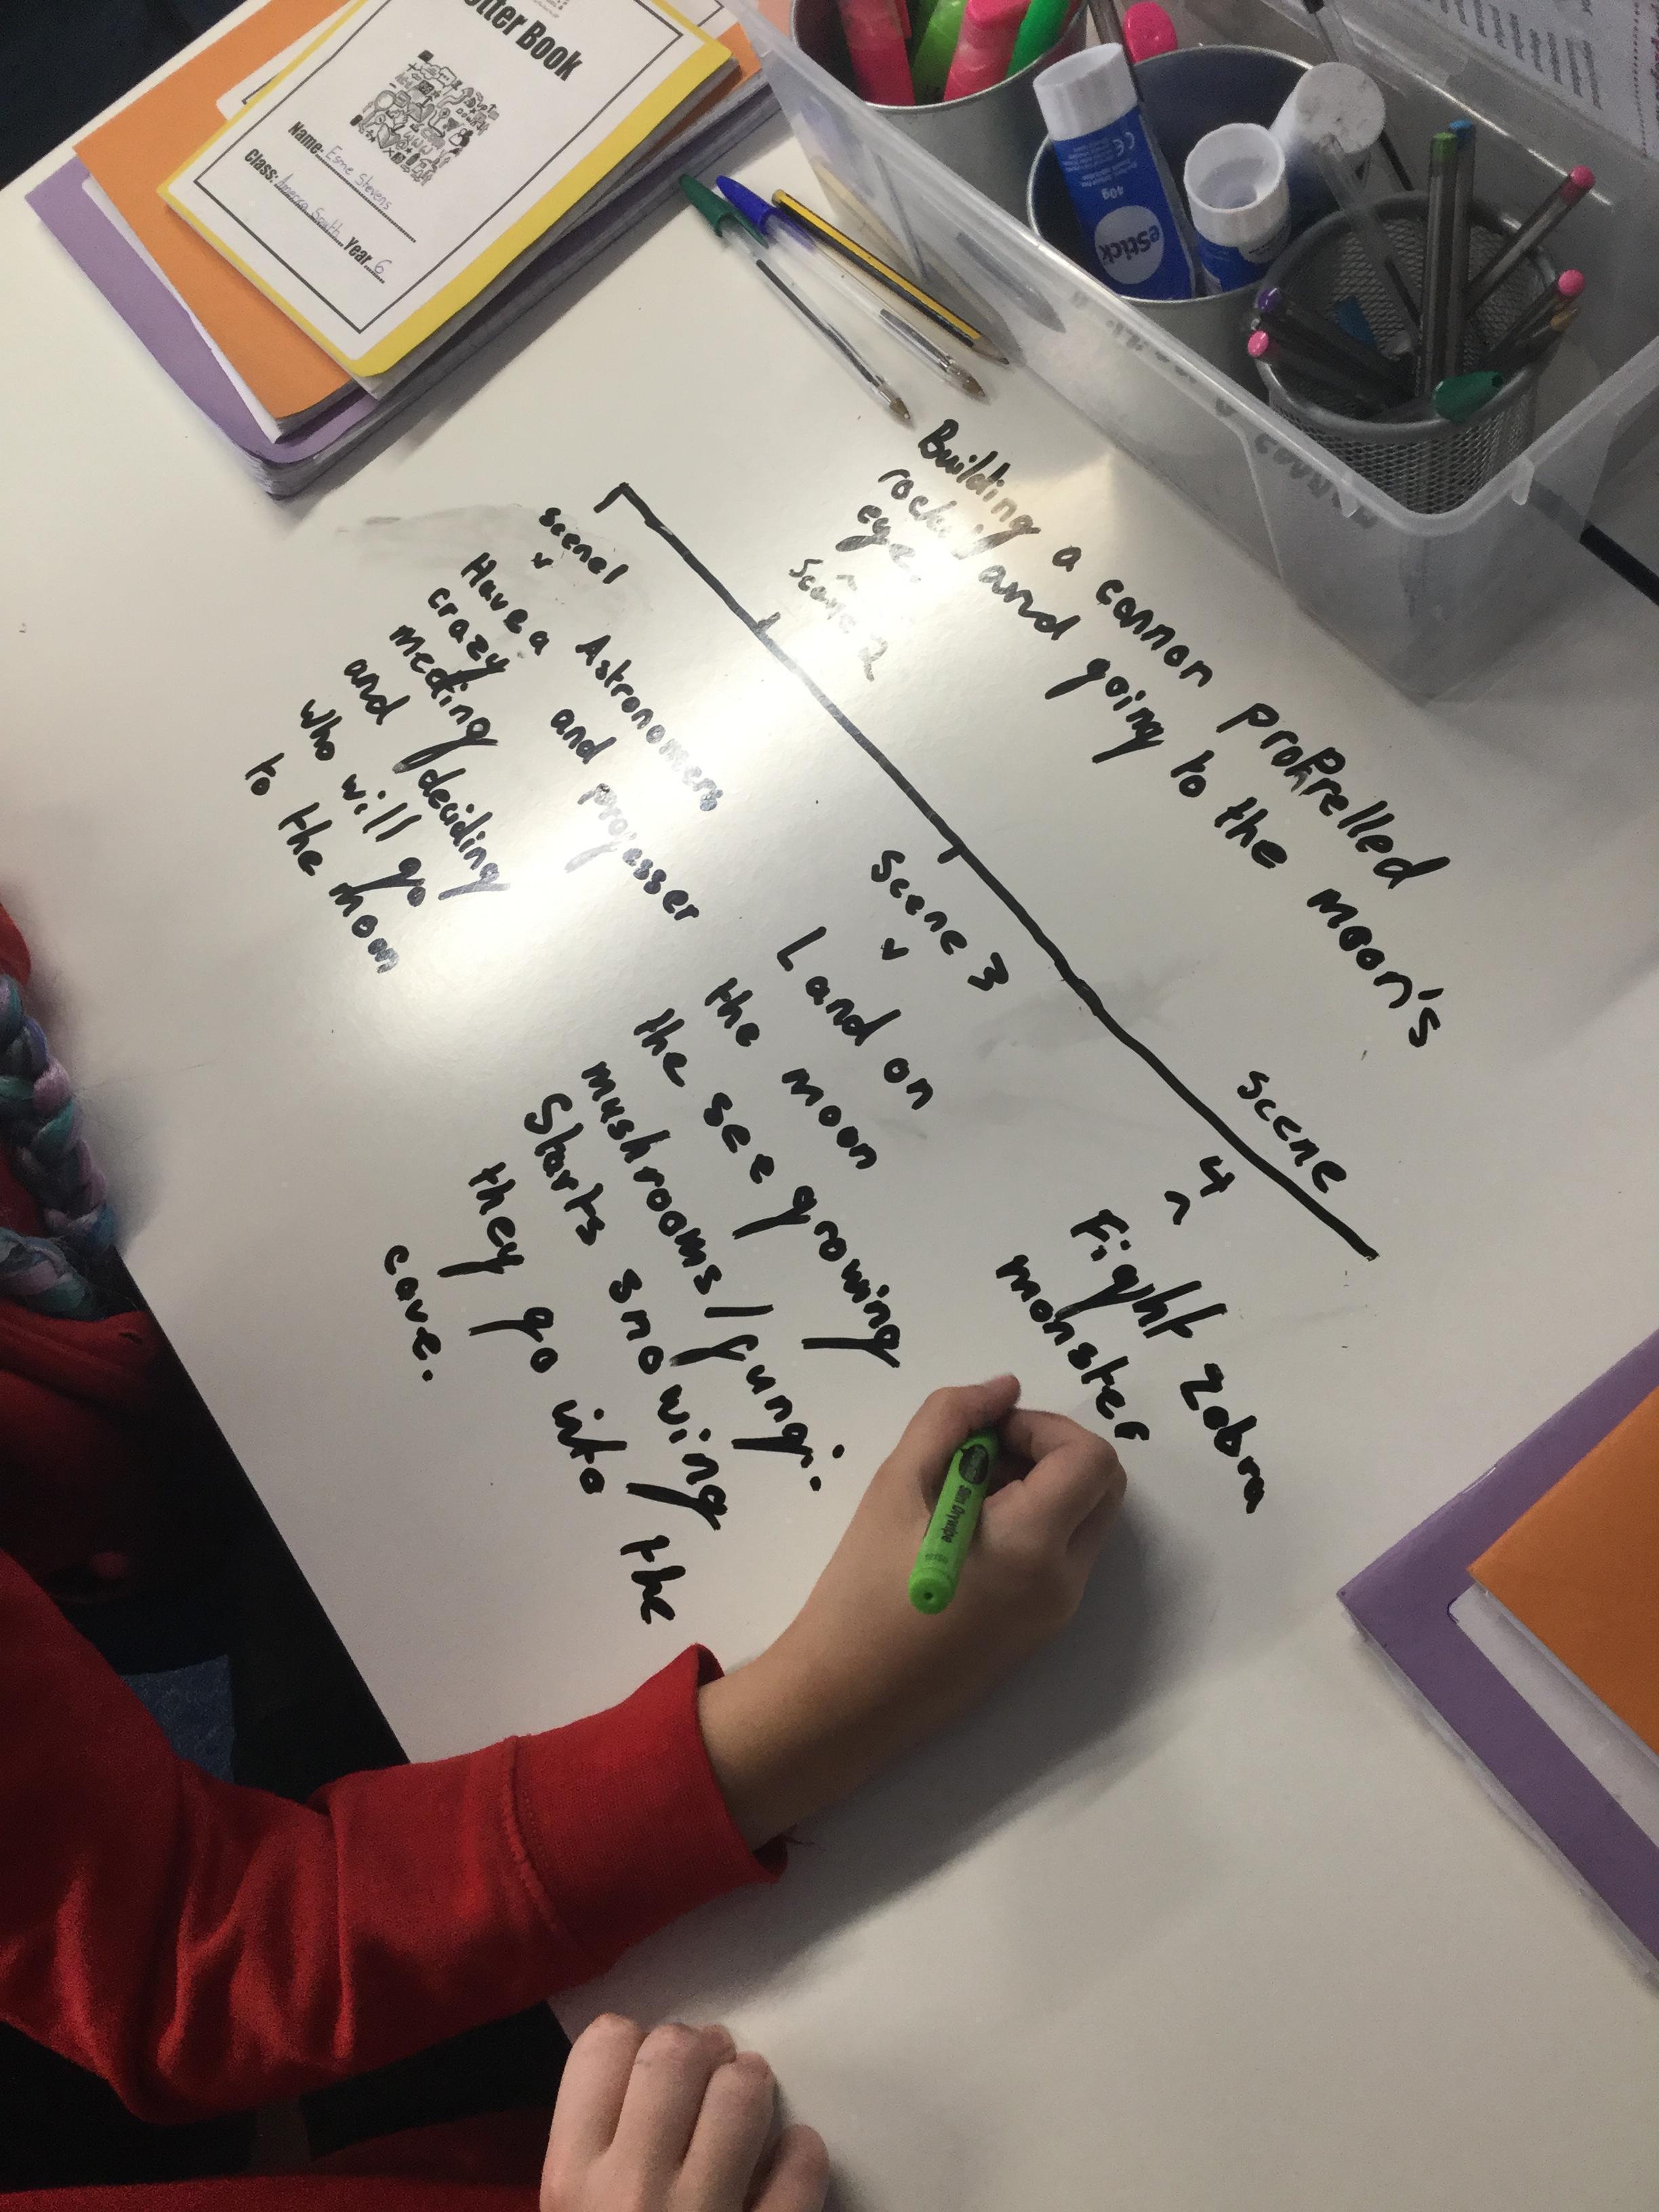 tter Book
Name: Esme Stevens
Class: America South Year 6
eStick
40g
Building a cannon propprelled
rocket and going to the moon's
eye.
Scene 2
scene1
Astronomers
and professer
Have a
crazy
meeting
and deciding
who will go
to the moon
Scene 3
Land on
the moon
the see growing
mushrooms/fungi.
Starts snowing
they go into the
cave.
scene
4
Fight Zebra
monster
Slim Drywipe